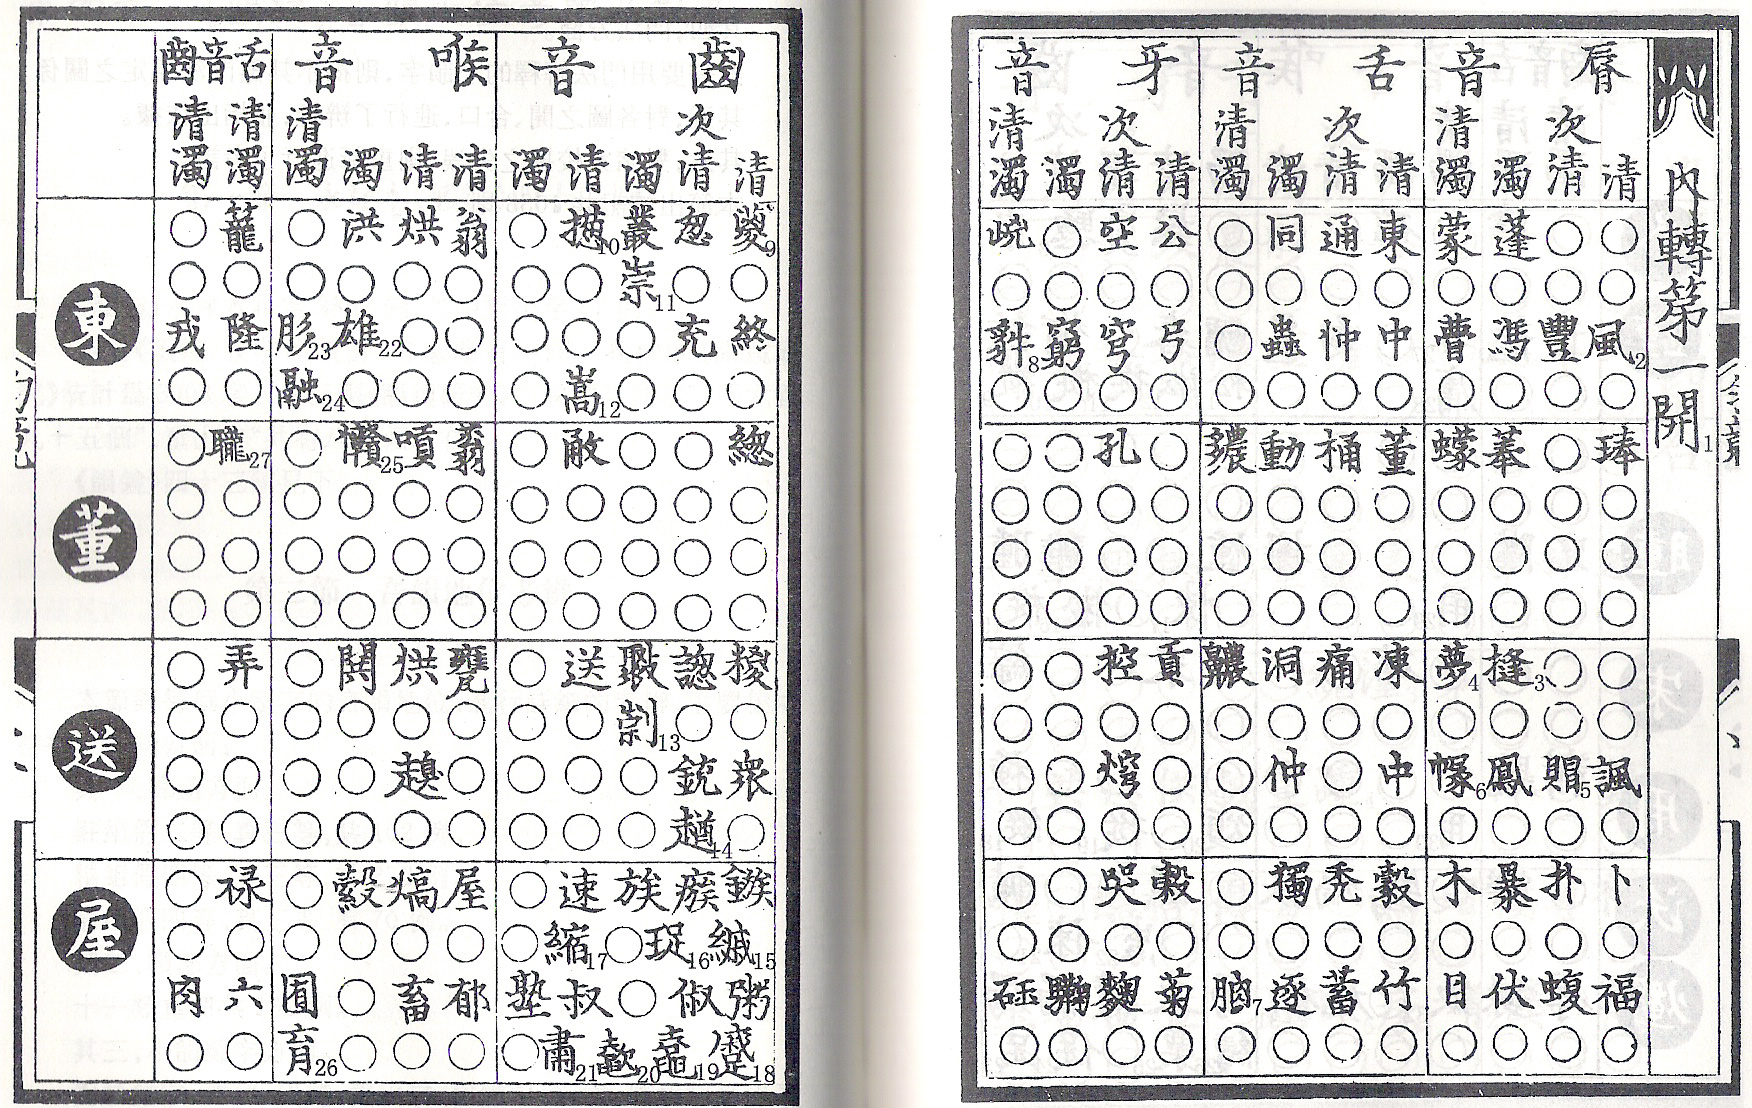 内轉第一開1
脣音 舌音 牙音
清 次清 濁 清濁 清 次清 濁 清濁 清 次清 濁 清濁
○ ○ 蓬 蒙 東 通 同 ○ 公 空 ○
○ ○ ○ ○ ○ ○ ○ ○ ○ ○ ○ ○
風2 豐 馮 瞢 中 忡 蟲 ○ 弓 穹 窮 8
○ ○ ○ ○ ○ ○ ○ ○ ○ ○ ○ ○
琫 ○ 菶 蠓 董 桶 動 ○ 孔 ○ ○
○ ○ ○ ○ ○ ○ ○ ○ ○ ○ ○ ○
○ ○ ○ ○ ○ ○ ○ ○ ○ ○ ○ ○
○ ○ ○ ○ ○ ○ ○ ○ ○ ○ ○ ○
○ ○ 㨍3 夢4 凍 痛 洞 齈 貢 控 ○ ○
○ ○ ○ ○ ○ ○ ○ ○ ○ ○ ○ ○
諷 賵5 鳳 幪6 中 ○ 仲 ○ ○ 焪 ○ ○
○ ○ ○ ○ ○ ○ ○ ○ ○ ○ ○ ○
卜 扑 暴 木 豰 禿 獨 ○ 穀 哭 ○ ○
○ ○ ○ ○ ○ ○ ○ ○ ○ ○ ○ ○
福 蝮 伏 目 竹 蓄 逐 7 菊 麴 驧 砡
○ ○ ○ ○ ○ ○ ○ ○ ○ ○ ○ ○
齒音 喉音 舌音齒
清 次清 濁 清 濁 清 清 濁 清濁 清濁 清濁
葼9 怱 叢 揔10 ○ 翁 烘 洪 ○ 籠 ○ 東
○ ○ 崇11 ○ ○ ○ ○ ○ ○ ○ ○
終 充 ○ ○ ○ ○ ○ 雄22 肜23 隆 戎
○ ○ ○ 嵩12 ○ ○ ○ ○ 融24 ○ ○
總 ○ 蓊 嗊 25 ○ 27 ○ 董
○ ○ ○ ○ ○ ○ ○ ○ ○ ○ ○
○ ○ ○ ○ ○ ○ ○ ○ ○ ○ ○
○ ○ ○ ○ ○ ○ ○ ○ ○ ○ ○
糉 謥 送 ○ 甕 烘 閧 ○ 弄 ○ 送
○ ○ 13 ○ ○ ○ ○ ○ ○ ○ ○
衆 銃 ○ ○ ○ ○ 趮 ○ ○ ○ ○
○ 趥14 ○ ○ ○ ○ ○ ○ ○ ○ ○
鏃 瘯 族 速 ○ 屋 熇 縠 ○ 禄 ○ 屋
縬15 珿16 ○ 縮17 ○ ○ ○ ○ ○ ○ ○
粥 俶 ○ 叔 塾 郁 畜 ○ 囿 六 肉
18 19 20 肅21 ○ ○ ○ ○ 育26 ○ ○